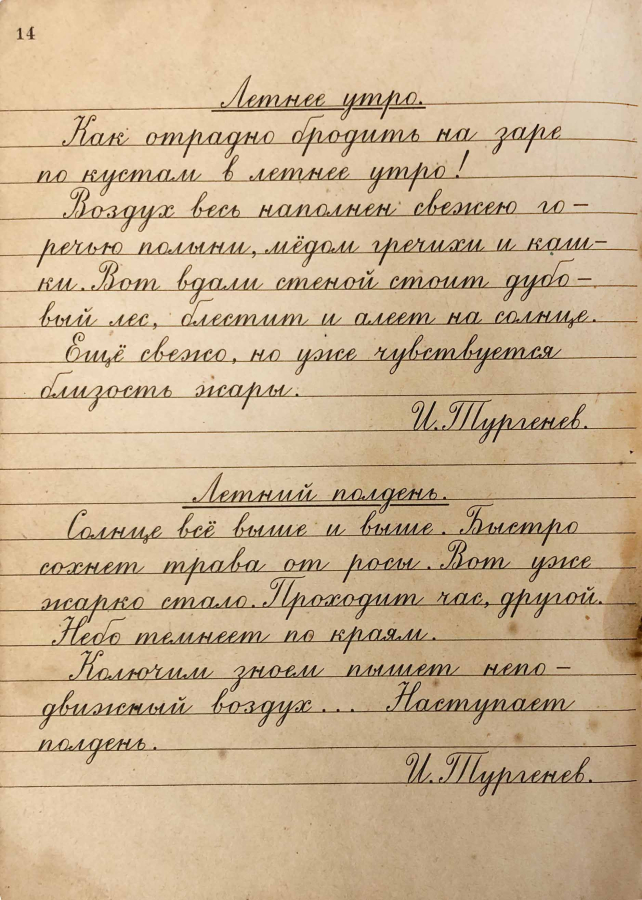 14
Летнее утро.
Как отрадно бродить на заре
по кустам в летнее утро!
Воздух весь наполнен свежею го-
речью полыни, мёдом гречихи и каш-
ки. Вот вдали стеной стоит дубо-
вый лес, блестит и алеет на солнце.
Ещё свежо, но уже чувствуется
близость жары.
И. Тургенев.
Летний полдень.
Солнце всё выше и выше. Быстро
сохнет трава от росы. Вот уже
жарко стало. Проходит час, другой.
Небо темнеет по краям.
Колючим зноем пышет непо-
движный воздух... Наступает
полдень.
И. Тургенев.